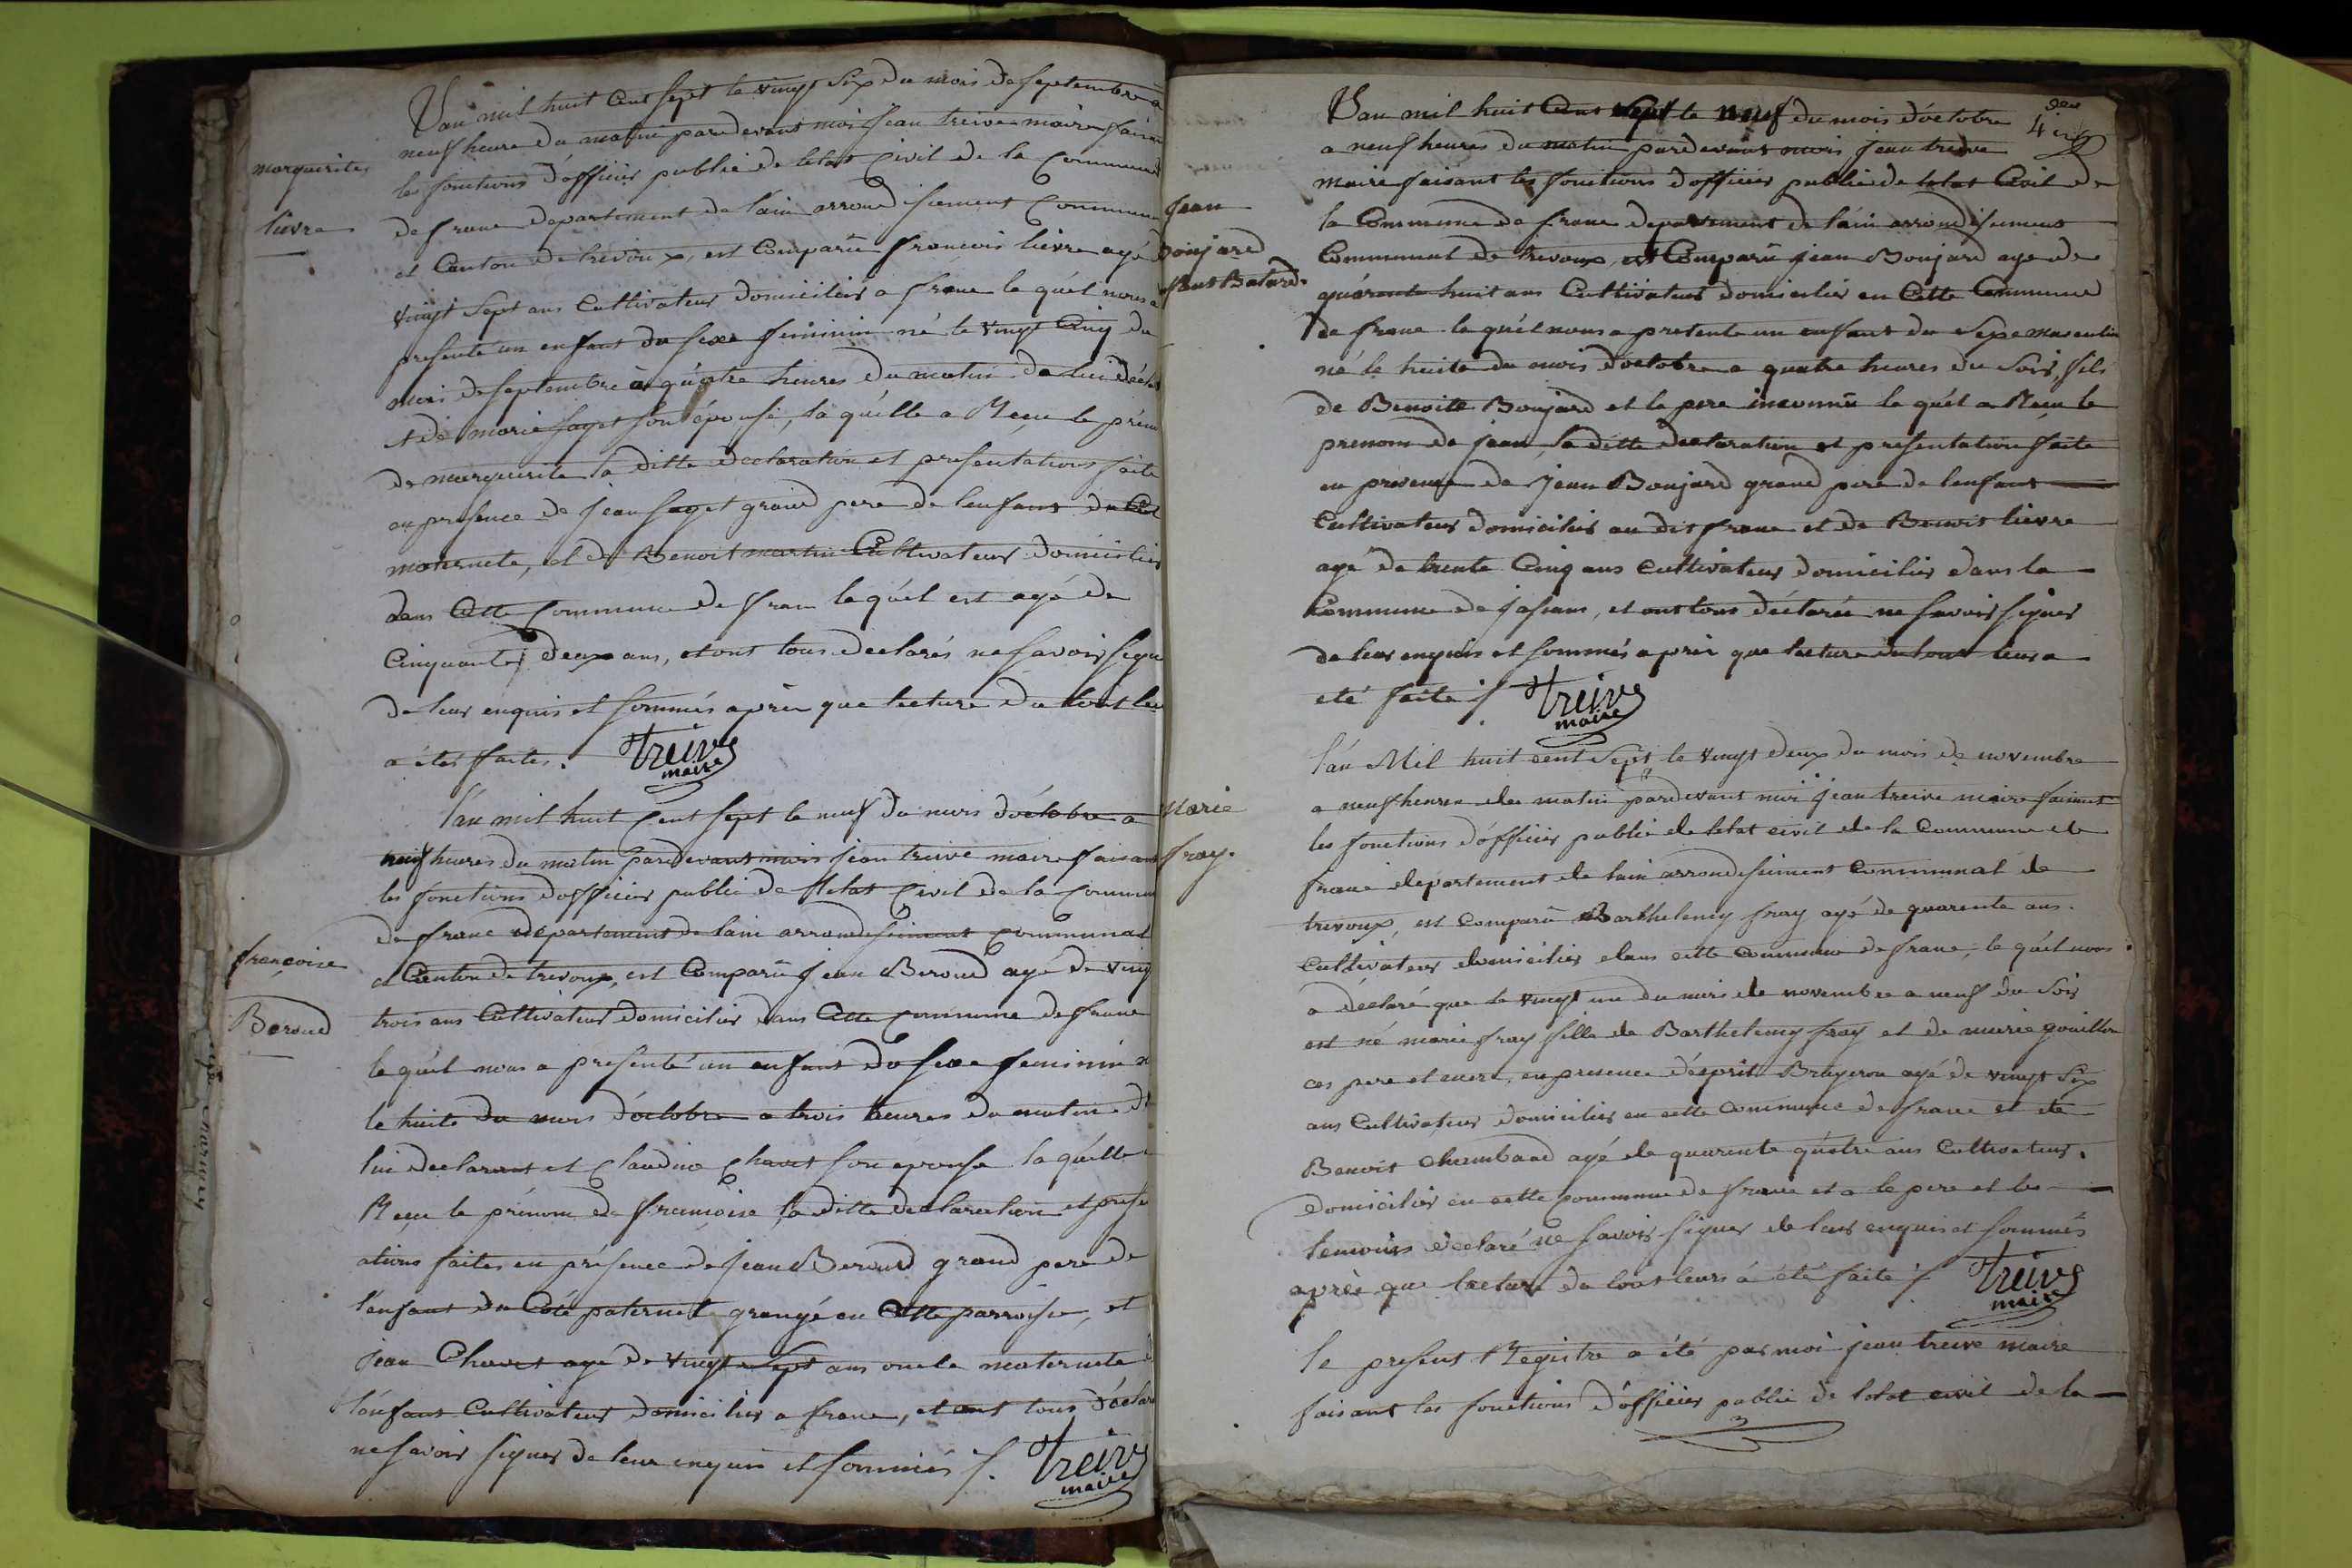 marguerite
lievre
L'an mil huit Cent sept le vingt six du mois de septembre a
neuf heure du matin pardevant moi jean treive maire faisan
les fonctions d'officier public de letat Civil de la Commune
de franc departement de l'ain arrondissement Communa
et Canton de trevoux, est Comparu francois lievre agé
vingt sept ans Cultivateur domicilier a franc le quel nous a
presenté un enfant du sexe feminin né le vingt Cinq du
mois de septembre a quatre heures du matin de lui decla
et de marie faget son épouse, la quelle a Recu le prén
de marguerite la ditte declaration et presentations faite
en presence de jean faget grand pere de l'enfant du Coté
maternele, et de Benoit martin Cultivateur domicilier
dans Cette Commune de franc le quel est agé de
Cinquantes deux ans, et ont tous declarés ne savoir signe
de leur enquis et sommés après que lecture du tout leu
a étés faites. Treive
maire
françoise
Beroud
l'an mil huit Cent sept le neuf du mois d'octobre a
neuf heures du matin pardevant mois jean treive maire faisant
les fonctions d'officier public de l'letat Civil de la Commun
de franc departement de l'ain arrondissement Communal
et Canton de trevoux, est Comparu jean Beroud agé de vingt
trois ans Cultivateur domicilier dans Cette Commune de franc
le quel nous a presenté un enfant du sexe feminin n
le huite du mois d'octobre a trois heures du matin d
lui declarant et Claudine Chavet son epouse la quelle
Recu le prénom de francoise la ditte declaration et prese
ations faites en présence de jean Beroud grand pere de
l'enfant du Coté paternele grangé en Cette parroisse, et
jean Chavet agé de vingt sept ans oncle maternele
l'enfant Cultivateur domicilier a franc, et ont tous déclar
ne savoir signer de leur enquis et sommés /. Treive
maire
4
Jean
Boujard
enfant Batard.
L'an mil huit Cent sept le neuf du mois d'octobre
a neuf heures du matin pardevant mois jean treive
maire faisant les fonctions d'officier public de letat Civil de
la Commune de franc departement de l'ain arrondissement
Communal de trevoux, est Comparu jean Boujard agé de
quarante huit ans Cultivateur domicilier en Cette Commune
de franc le quel nous a presenté un enfant du Sexe masculin
né le huite du mois d'octobre a quatre heures du Soir, fils
de Benoite Boujard et le pere inconnu le quel a Recu le
prenom de jean, la ditte declaration et presentation faite
en présence de jean Boujard grand pere de l'enfant
Cultivateur domicilier au dit franc et de Benoit lievre
agé de trente Cinq ans Cultivateur domicilier dans la
Commune de jassans, et ont tous déclarée ne savoir signer
de leur enquis et sommés après que lecture du tout leur a
eté faite /. Treive
maire
Marie
fray.
l'an Mil huit cent Sept le vingt deux du mois de novembre
a neuf heures du matin pardevant moi jean treive maire faisant
les fonctions d'officier public de letat civil de la Commune de
franc departement de l'ain arrondissement Communal de
trevoux, est Comparu Barthelemy fray agé de quarente ans.
Cultivateur domicilier dans cette Commune de franc, le quel nous
a déclaré que le vingt un du mois de novembre a neuf du Soir
est né marie fray fille de Barthelemy fray et de marie gouillon
ces pere et mere, en presence d'esprit Brugeron agé de vingt Six
ans Cultivateur domicilier en cette Commune de franc et de
Benoit Chambard agé de quarente quatre ans Cultivateur.
domicilier en cette Commune de franc et a le pere et les
temoins declaré ne savoir signer de leur enquis et sommés
après que lecture du tout leurs a été faite /. Treive
maire
le present Registre a été par moi jean treive maire
faisant les fonctions d'officier public de letat civil de la